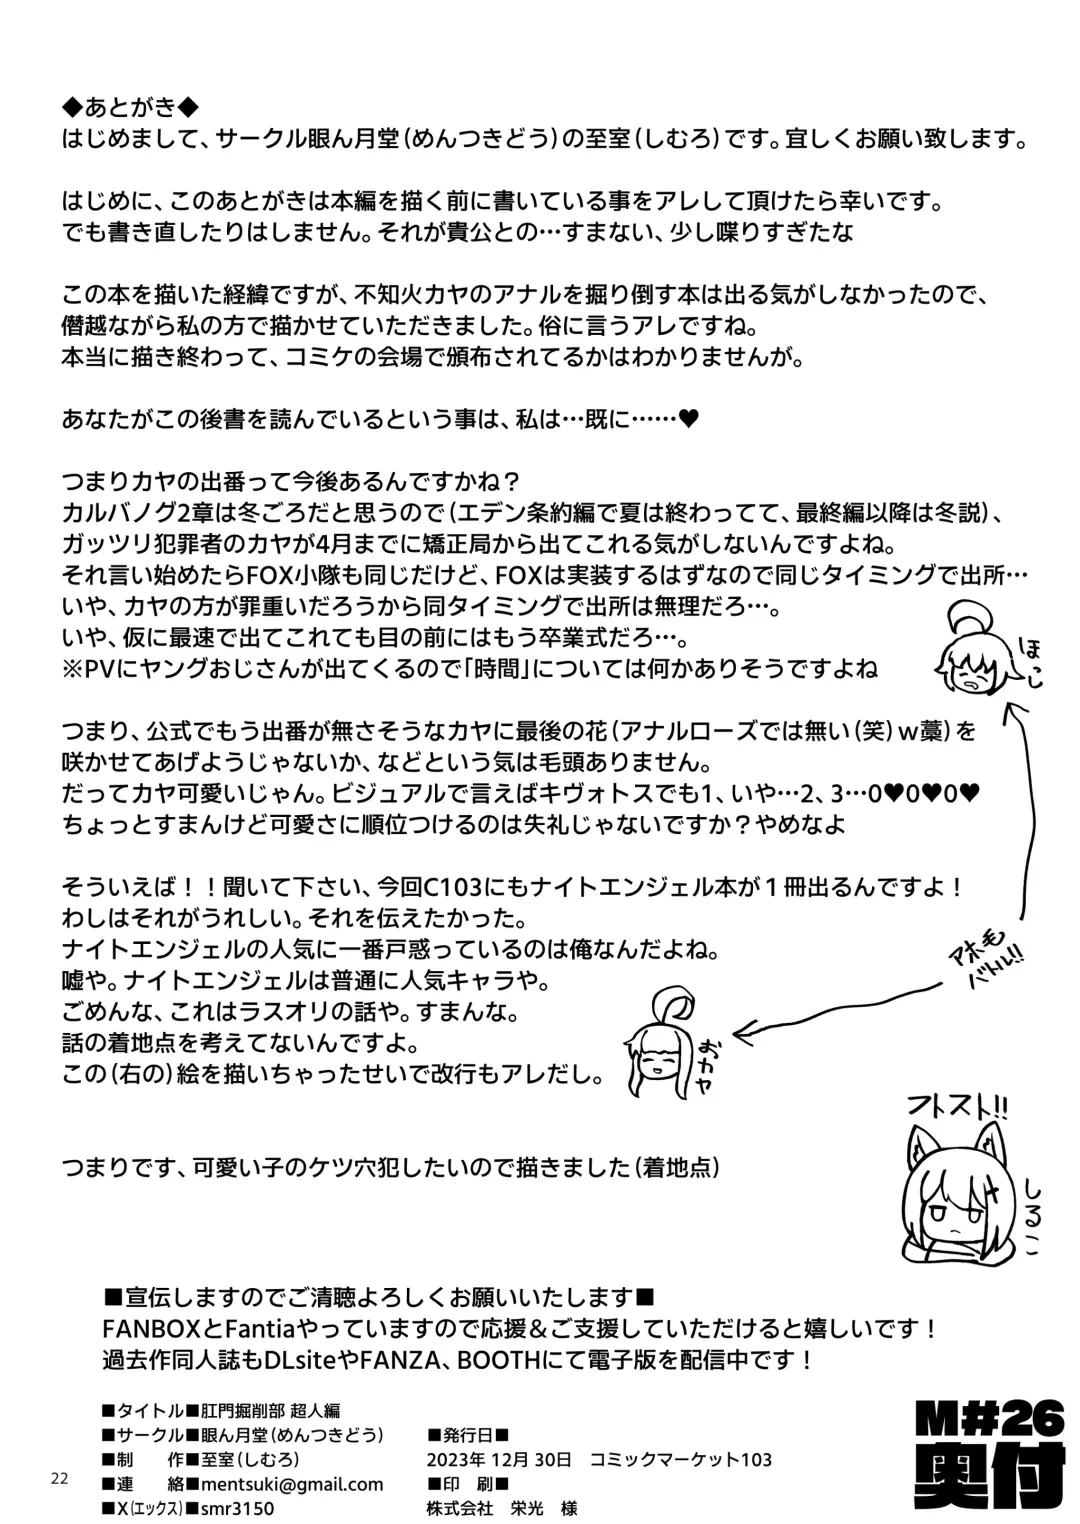 ◆あとがき◆
はじめまして、サークル眼ん月堂(めんつきどう)の至室(しむろ)です。宜しくお願い致します。
はじめに、このあとがきは本編を描く前に書いている事をアレして頂けたら幸いです。
でも書き直したりはしません。それが貴公との…すまない、少し喋りすぎたな
この本を描いた経緯ですが、不知火カヤのアナルを掘り倒す本は出る気がしなかったので、
僭越ながら私の方で描かせていただきました。俗に言うアレですね。
本当に描き終わって、コミケの会場で頒布されてるかはわかりませんが。
あなたがこの後書を読んでいるという事は、私は…既に……♥
つまりカヤの出番って今後あるんですかね？
カルバノグ2章は冬ごろだと思うので(エデン条約編で夏は終わってて、最終編以降は冬説)、
ガッツリ犯罪者のカヤが4月までに矯正局から出てこれる気がしないんですよね。
それ言い始めたらFOX小隊も同じだけど、FOXは実装するはずなので同じタイミングで出所…
いや、カヤの方が罪重いだろうから同タイミングで出所は無理だろ…。
いや、仮に最速で出てこれても目の前にはもう卒業式だろ…。
※PVにヤングおじさんが出てくるので｢時間｣については何かありそうですよね
ほっし
つまり、公式でもう出番が無さそうなカヤに最後の花(アナルローズでは無い(笑)ｗ藁)を
咲かせてあげようじゃないか、などという気は毛頭ありません。
だってカヤ可愛いじゃん。ビジュアルで言えばキヴォトスでも1、いや…2、3…0♥0♥0♥
ちょっとすまんけど可愛さに順位つけるのは失礼じゃないですか？やめなよ
そういえば！！聞いて下さい、今回C103にもナイトエンジェル本が１冊出るんですよ！
わしはそれがうれしい。それを伝えたかった。
ナイトエンジェルの人気に一番戸惑っているのは俺なんだよね。
嘘や。ナイトエンジェルは普通に人気キャラや。
ごめんな、これはラスオリの話や。すまんな。
話の着地点を考えてないんですよ。
この(右の)絵を描いちゃったせいで改行もアレだし。
アホ毛
バトル!!
おカヤ
つまりです、可愛い子のケツ穴犯したいので描きました(着地点)
フトスト!!
しるこ
■宣伝しますのでご清聴よろしくお願いいたします■
FANBOXとFantiaやっていますので応援＆ご支援していただけると嬉しいです！
過去作同人誌もDLsiteやFANZA、BOOTHにて電子版を配信中です！
■タイトル■肛門掘削部 超人編
■サークル■眼ん月堂(めんつきどう)
■制　作■至室(しむろ)
■連　絡■mentsuki@gmail.com
■X(エックス)■smr3150
■発行日■
2023年 12月 30日　コミックマーケット103
■印　刷■
株式会社　栄光　様
M#26
奥付
22